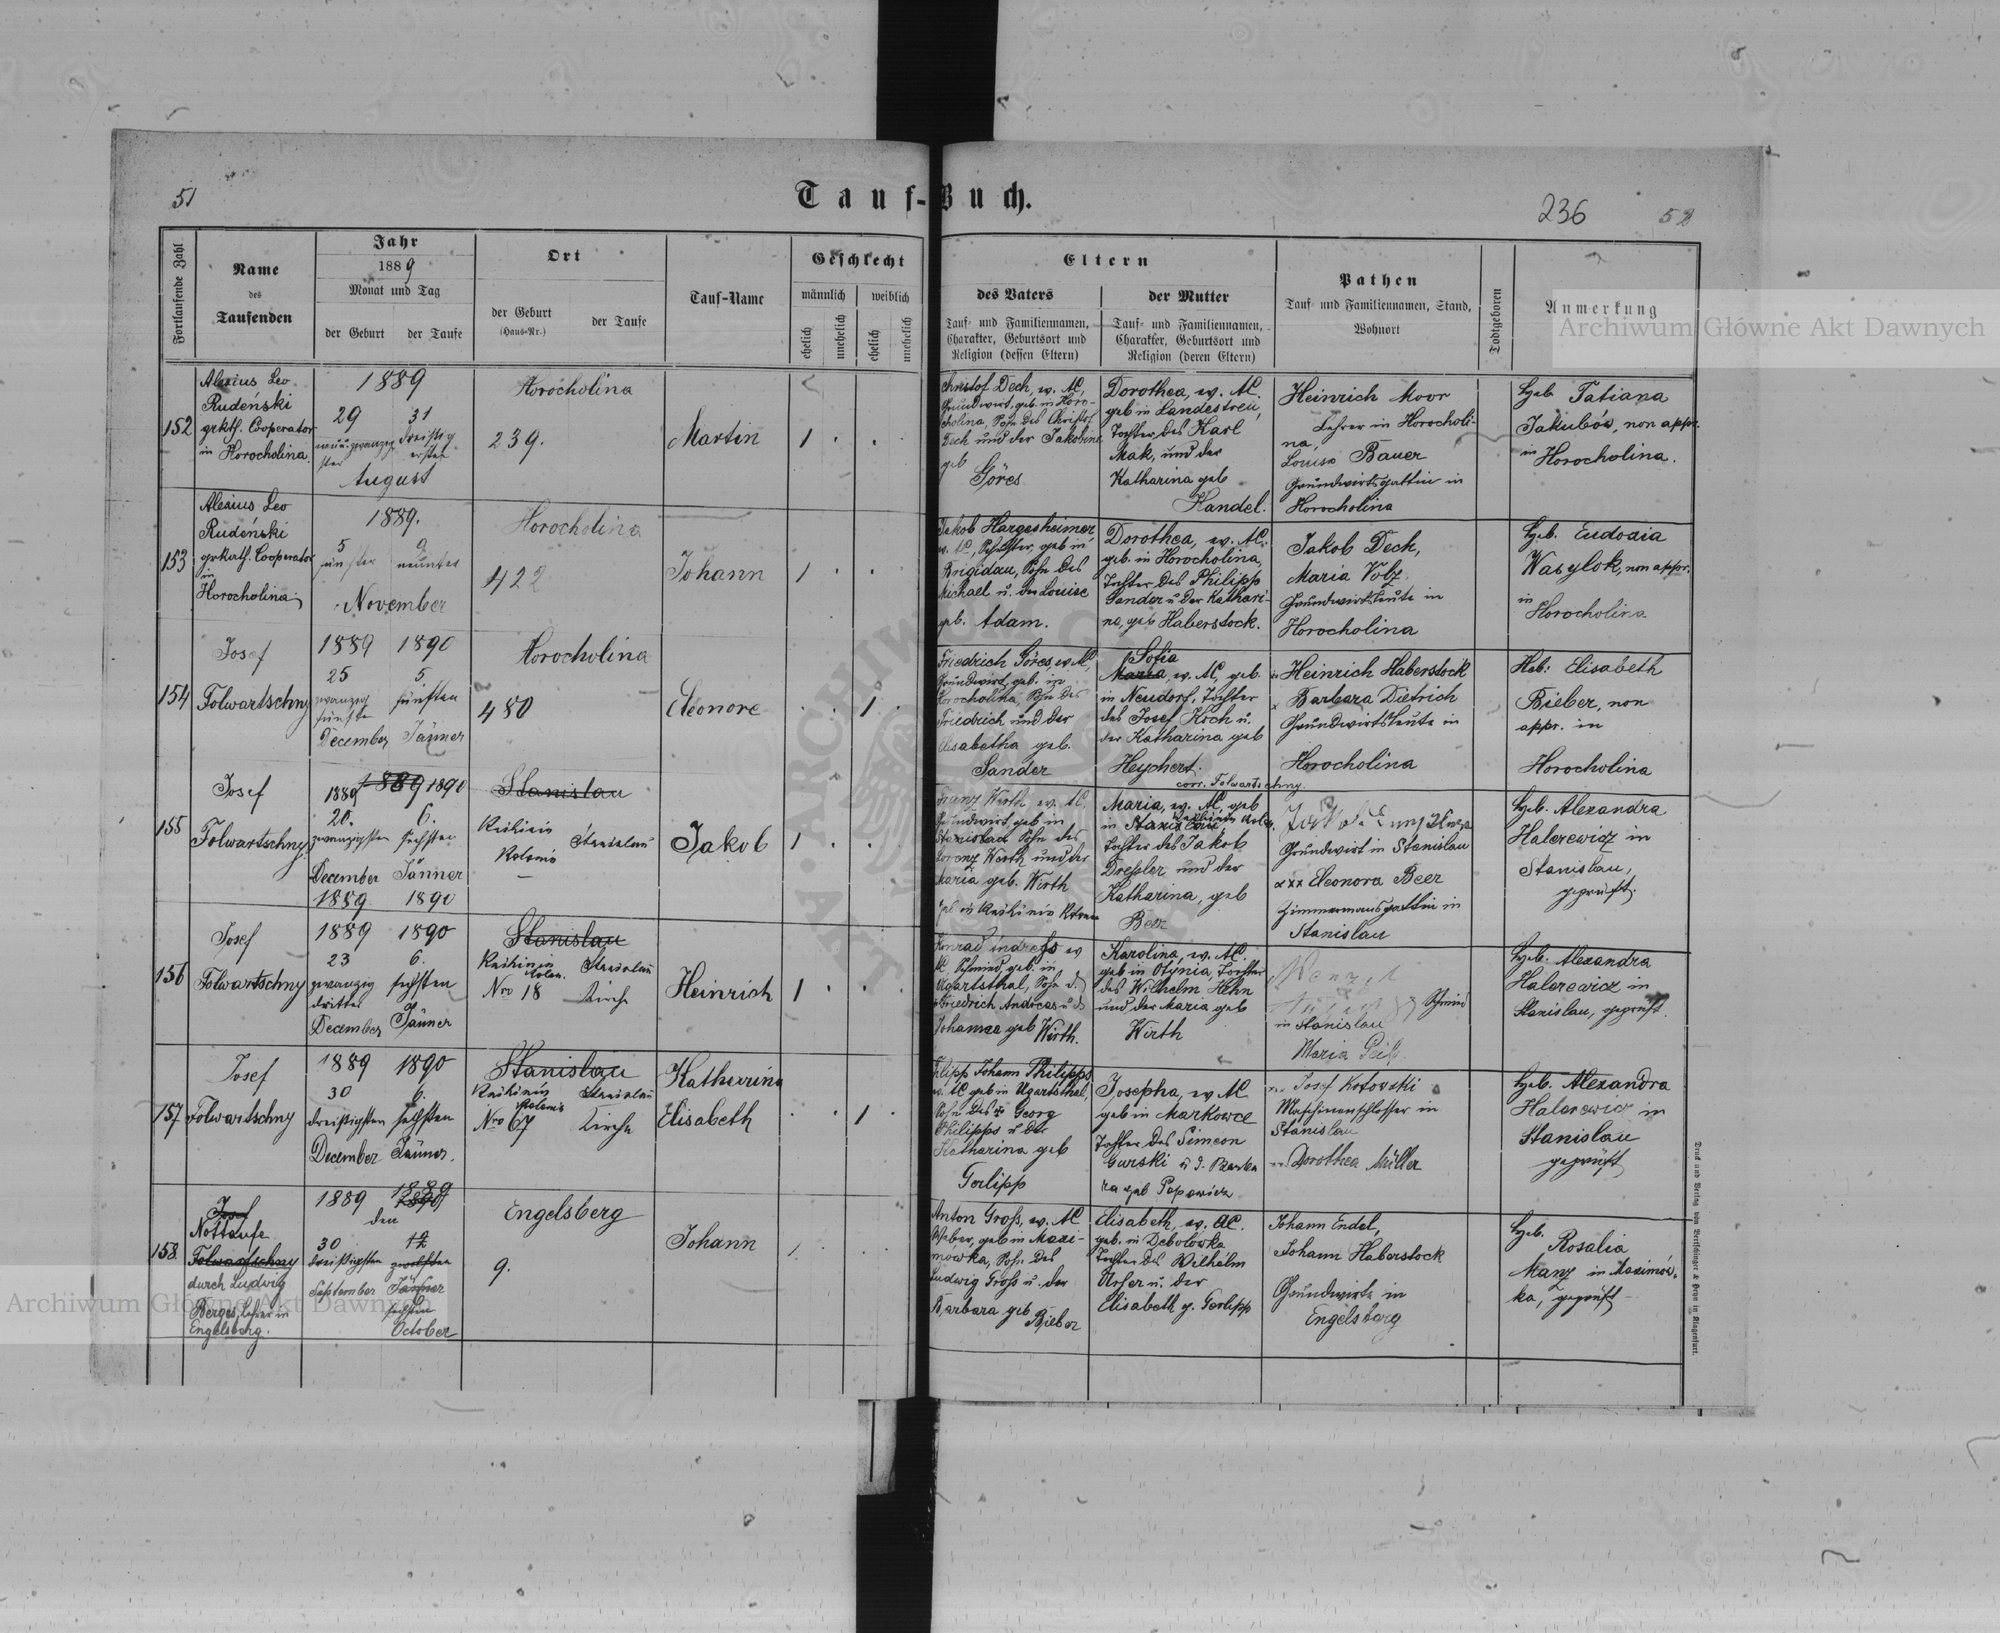 51
Tauf-Buch.
236
52
Fortlaufende Zahl
Name
des
Taufenden
Jahr
1889
Monat und Tag
der Geburt
der Taufe
Ort
der Geburt
(Haus-Nr.)
der Taufe
Tauf-Name
Geschlecht
männlich
weiblich
ehelich
unehelich
ehelich
unehelich
Eltern
des Vaters
Tauf- und Familiennamen,
Charakter, Geburtsort und
Religion (dessen Eltern)
der Mutter
Tauf- und Familiennamen,
Charakter, Geburtsort und
Religion (deren Eltern)
Pathen
Tauf- und Familiennamen, Stand,
Wohnort
Todtgeboren
Anmerkung
Archiwum Główne Akt Dawnych
152
Alexius Leo
Rudeński
grkth. Cooperator
in Horocholina
1889
29 31
neunundzwanzig dreißig
ster ersten
August
Horocholina
239.
Martin
1
Christof Dech, ev. AC,
Grundwirt, geb. in Horo-
cholina, Sohn des Christof
Dech und der Jakobine
geb
Göres
Dorothea, ev. AC.
geb in Landestreu,
Tochter des Karl
Mak, und der
Katharina geb
Handel.
Heinrich Moor
Lehrer in Horocholi-
na
Louise Bauer
Grundwirtsgattin in
Horocholina
Heb Tatiana
Jakubów, non appr.
in
Horocholina.
153
Alexius Leo
Rudeński
grkath. Cooperator
in
Horocholina
1889.
5 9
fünfter neunter
November
Horocholina
422
Johann
1
Jakob Hargesheimer,
ev. AC, geb in
Brigidau, Sohn des
Michael u. der Louise
geb. Adam.
Dorothea, ev. AC.
geb. in Horocholina,
Tochter des Philipp
Sander u der Kathari-
na, geb Haberstock.
Jakob Dech,
Maria Volz,
Grundwirtsleute in
Horocholina
Heb. Eudoxia
Wasylok, non appr.
in
Horocholina
154
Josef
Folwartschny
1889 1890
25 5.
zwanzig fünften
fünfte
December Jänner
Horocholina
480
Eleonore
1
Friedrich Göres, ev. AC,
Grundwirt, geb. in
Horocholina, Sohn des
Friedrich und der
Elisabetha geb.
Sander
Sofia
Maria, ev. AC, geb.
in Neudorf, Tochter
des Josef Koch u.
der Katharina geb
Heychert.
Heinrich Haberstock
Barbara Dietrich
Grundwirtsleute in
Horocholina
Heb: Elisabeth
Bieber, non
appr. in
Horocholina
155
Josef
Folwartschny
1889 1889 1890
20. 6.
zwanzigsten sechsten
December Jänner
1889 1890
Stanislau
Kolonie
Stanislau
Jakob
1
Franz Wirth ev. AC,
Grundwirt, geb in
Stanislau Sohn des
Lorenz Wirth und der
Maria geb. Wirth
corr. Folwartschny
Maria, ev. AC, geb
in Stanislau
Tochter des Jakob
Dressler und der
Katharina, geb
Beer
Grundwirt in Stanislau
xxx Eleonora Beer
Zimmermansgattin in
Stanislau
Heb. Alexandra
Halerewicz in
Stanislau,
geprüft.
156
Josef
Folwartschny
1889 1890
23 6.
zwanzig sechsten
dritter
December Jänner
Stanislau
Stanislau
Nro 18 Kirche
Heinrich
1
Konrad Andress ev
AC, Schmied, geb. in
Ugartsthal, Sohn d.
Friedrich Andreas u d
Johanna geb Wirth.
Karolina, ev. AC.
geb in Otynia, Tochter
des Wilhelm Hehn
und der Maria geb
Wirth
Schmied
in Stanislau
Maria
Heb. Alexandra
Halerewicz in
Stanislau, geprüft.
157
Josef
Folwartschny
1889 1890
30 6.
dreißigsten sechsten
December Jänner.
Stanislau
Stanislau
Nro 67 Kirche
Katharina
Elisabeth
1
Filipp Johann Philipps
ev. AC geb in Ugartsthal,
Sohn des Georg
Philipps u der
Katharina geb
Gerlipp
Josepha, ev AC
geb in Markowce
Tochter des Simeon
Gurski u d. Barba
ra geb Popowicz
Josef Kotowski
Maschinenschlosser in
Stanislau
Dorothea Müller
Heb. Alexandra
Halerewicz in
Stanislau
geprüft
158
Josef
Nottaufe
Folwartschny
durch Ludwig
Berges, Lehrer in
Engelsberg.
1889 1889 1890
den
30 12
dreißigsten zwölften
September Jänner
sechsten
October
Engelsberg
9.
Johann
1
Anton Groß, ev. AC
Weber, geb in Maxi-
mówka, Sohn des
Ludwig Groß u. der
Barbara geb
Bieber
Elisabeth, ev. AC.
geb. in Debolówka
Tochter des Wilhelm
u. der
Elisabeth g. Gerlipp
Johann Endel,
Johann Haberstock
Grundwirte in
Engelsberg
Heb.
Rosalia
Manz in Maximów-
ka, geprüft
Archiwum Główne Akt Dawnych